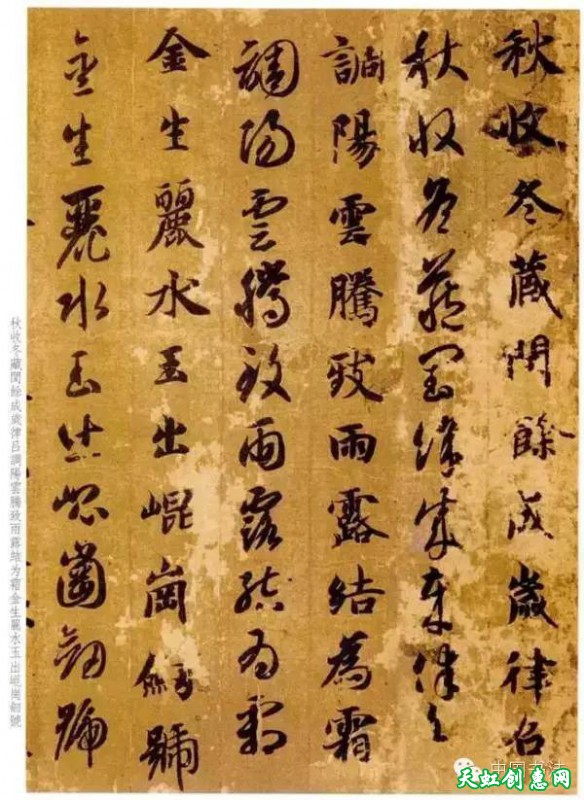 秋收冬藏閏餘成歲律呂
秋收冬藏閏餘成歲律呂
調陽雲騰致雨露結為霜
調陽雲騰致雨露結為霜
金生麗水玉出崐崗劒號
金生麗水玉出崐崗劒號
秋收冬藏閏餘成歲律吕調陽雲騰致雨露結为霜金生麗水玉出崐崗劒號
中国书法
天虹创意网